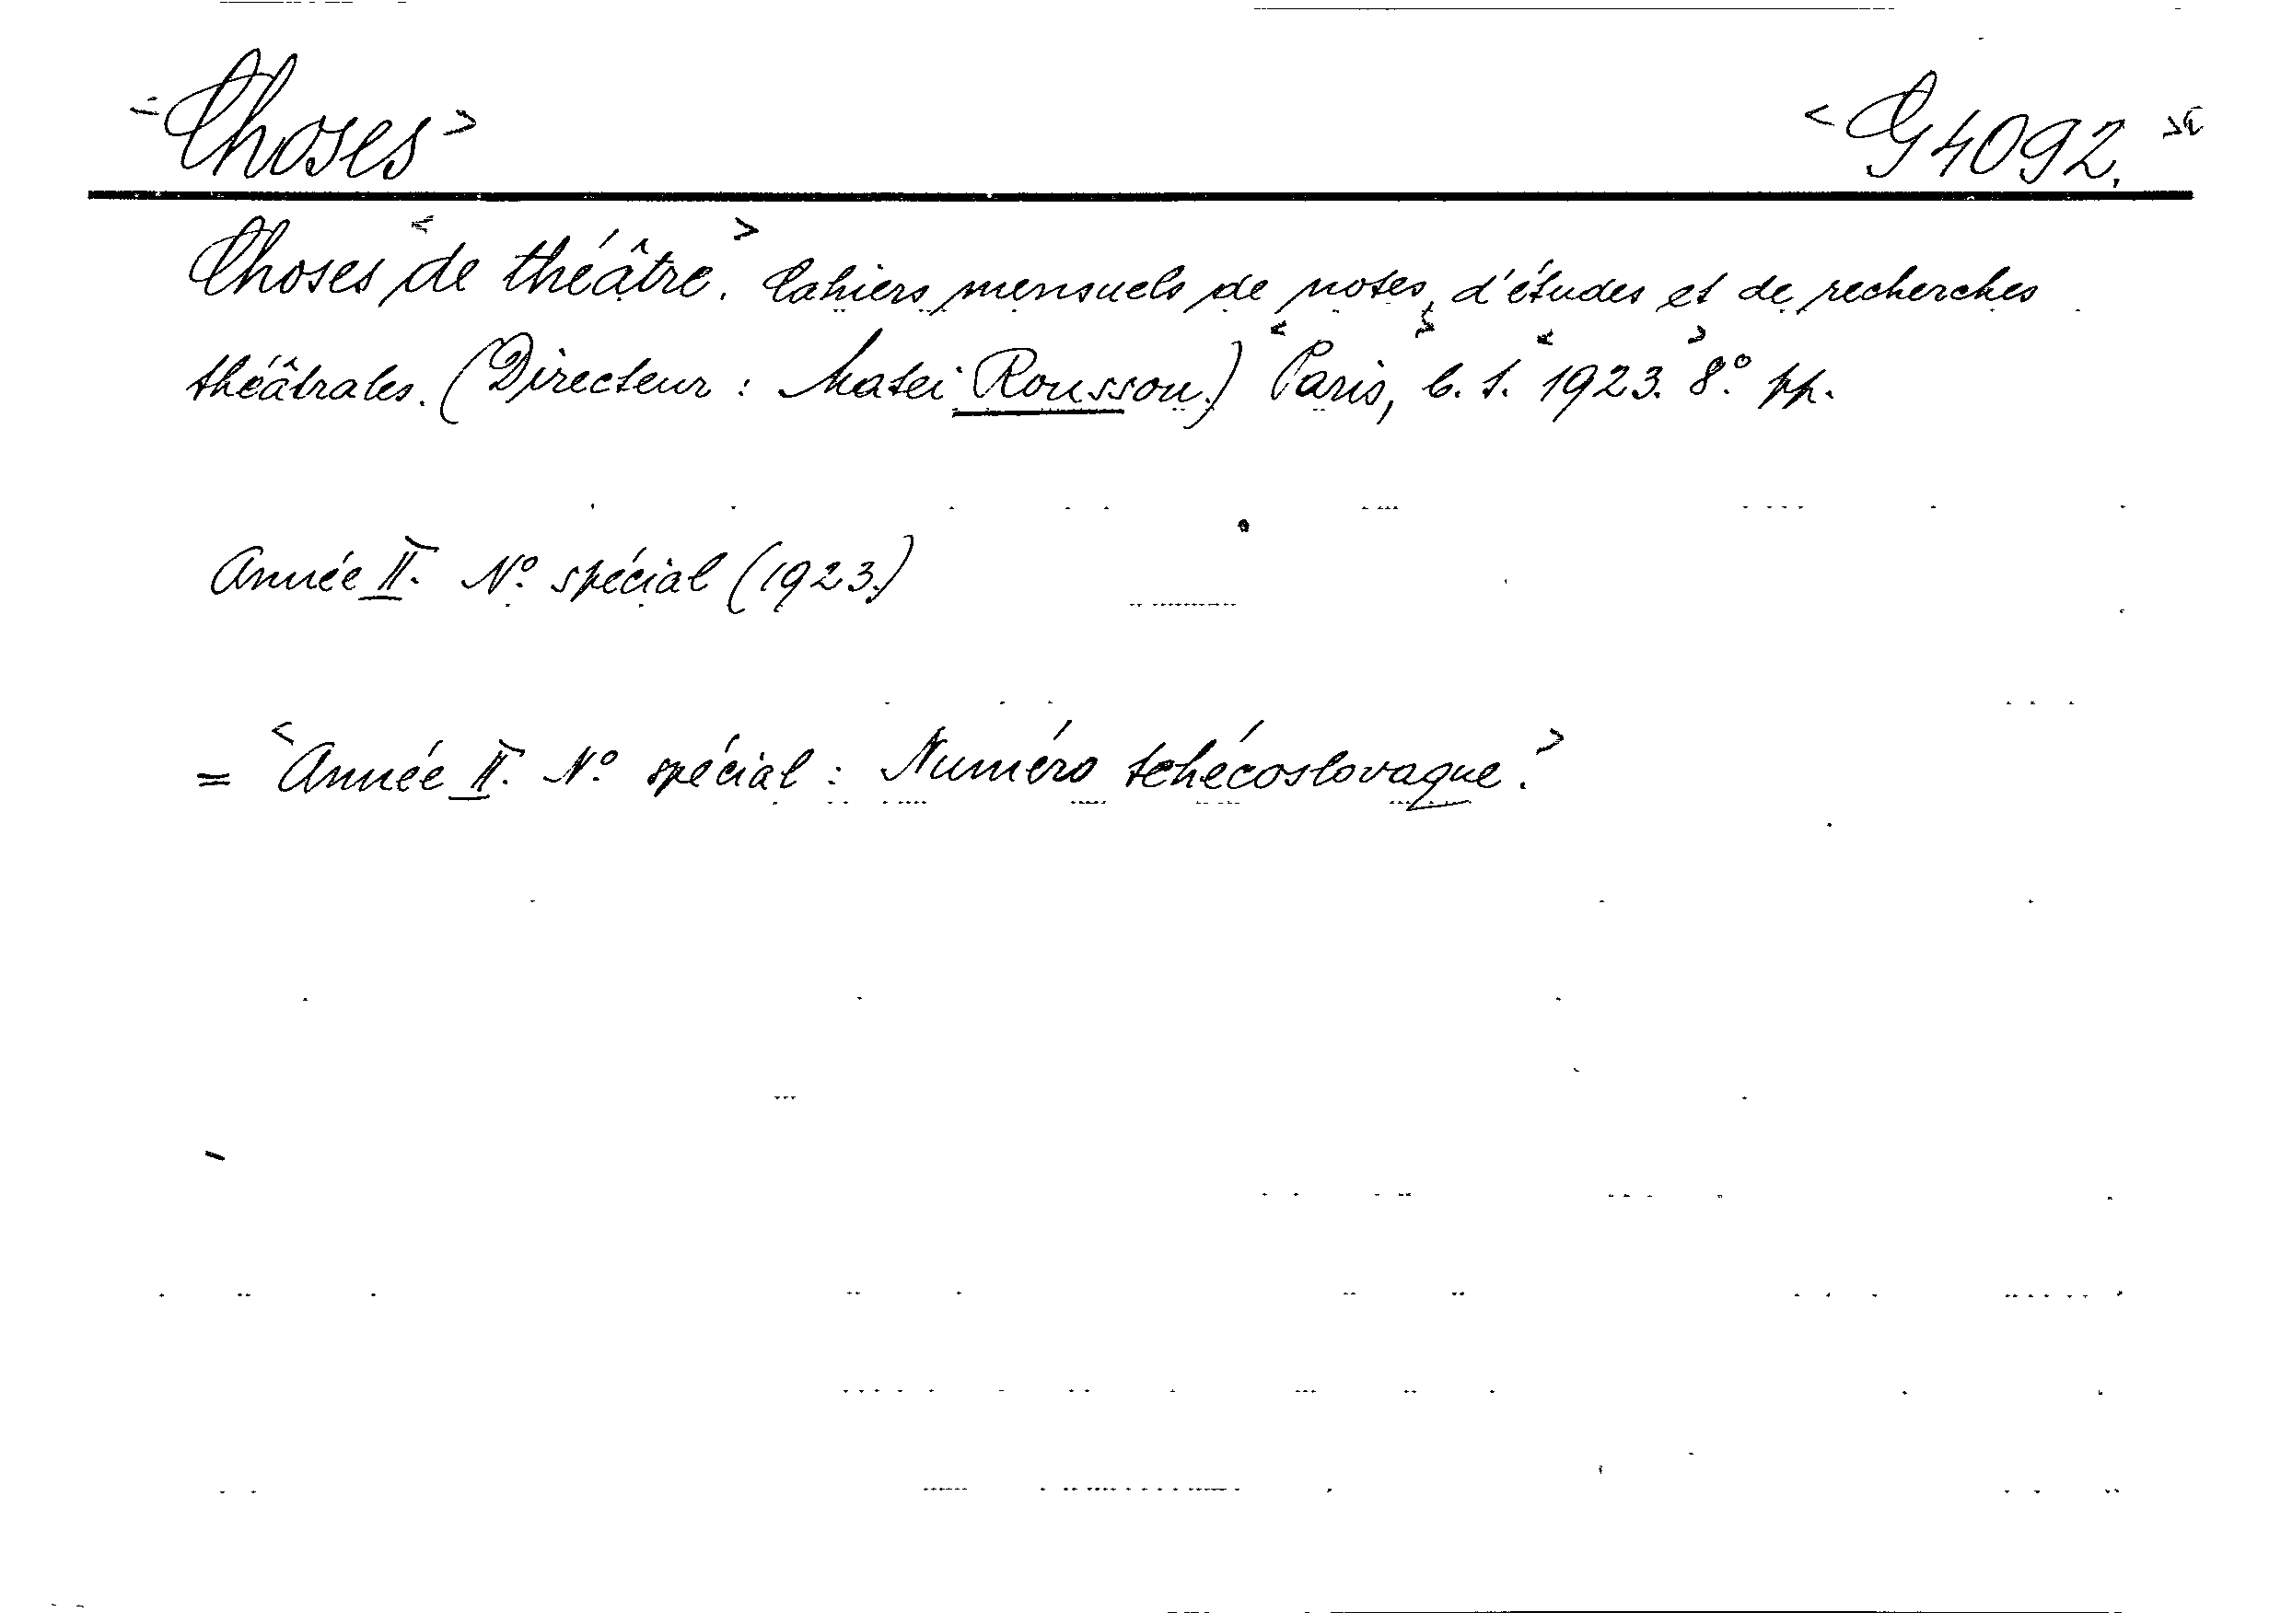 <Choses> <G 4092.>
Choses <de théâtre.> Cahiers mensuels de notes, d'études et de recherches
théâtrales. (Directeur : Matei Roussou.) <Paris,> b. t. <1923.> 8º. pp.
Année II. Nº. spécial (1923.)
= <Année II. Nº. spécial : Numéro tchécoslovaque.>